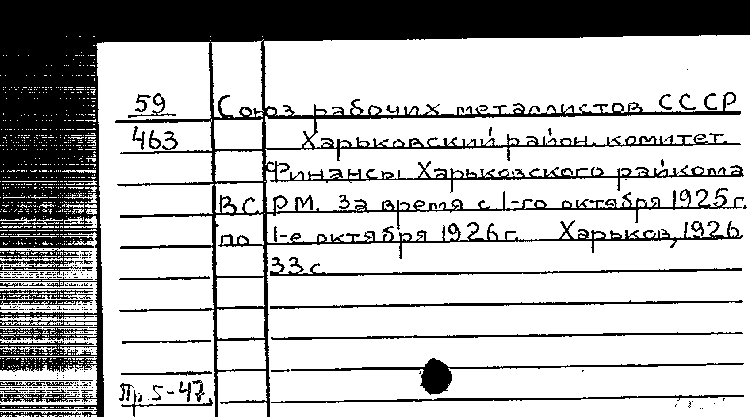 59 Союз рабочих металлистов СССР
463 Харьковский район. комитет.
Финансы Харьковского райкома
ВСРМ. За время с 1-го октября 1925 г.
по 1-е октября 1926 г. Харьков, 1926
33 с.
Пр. 5-47.